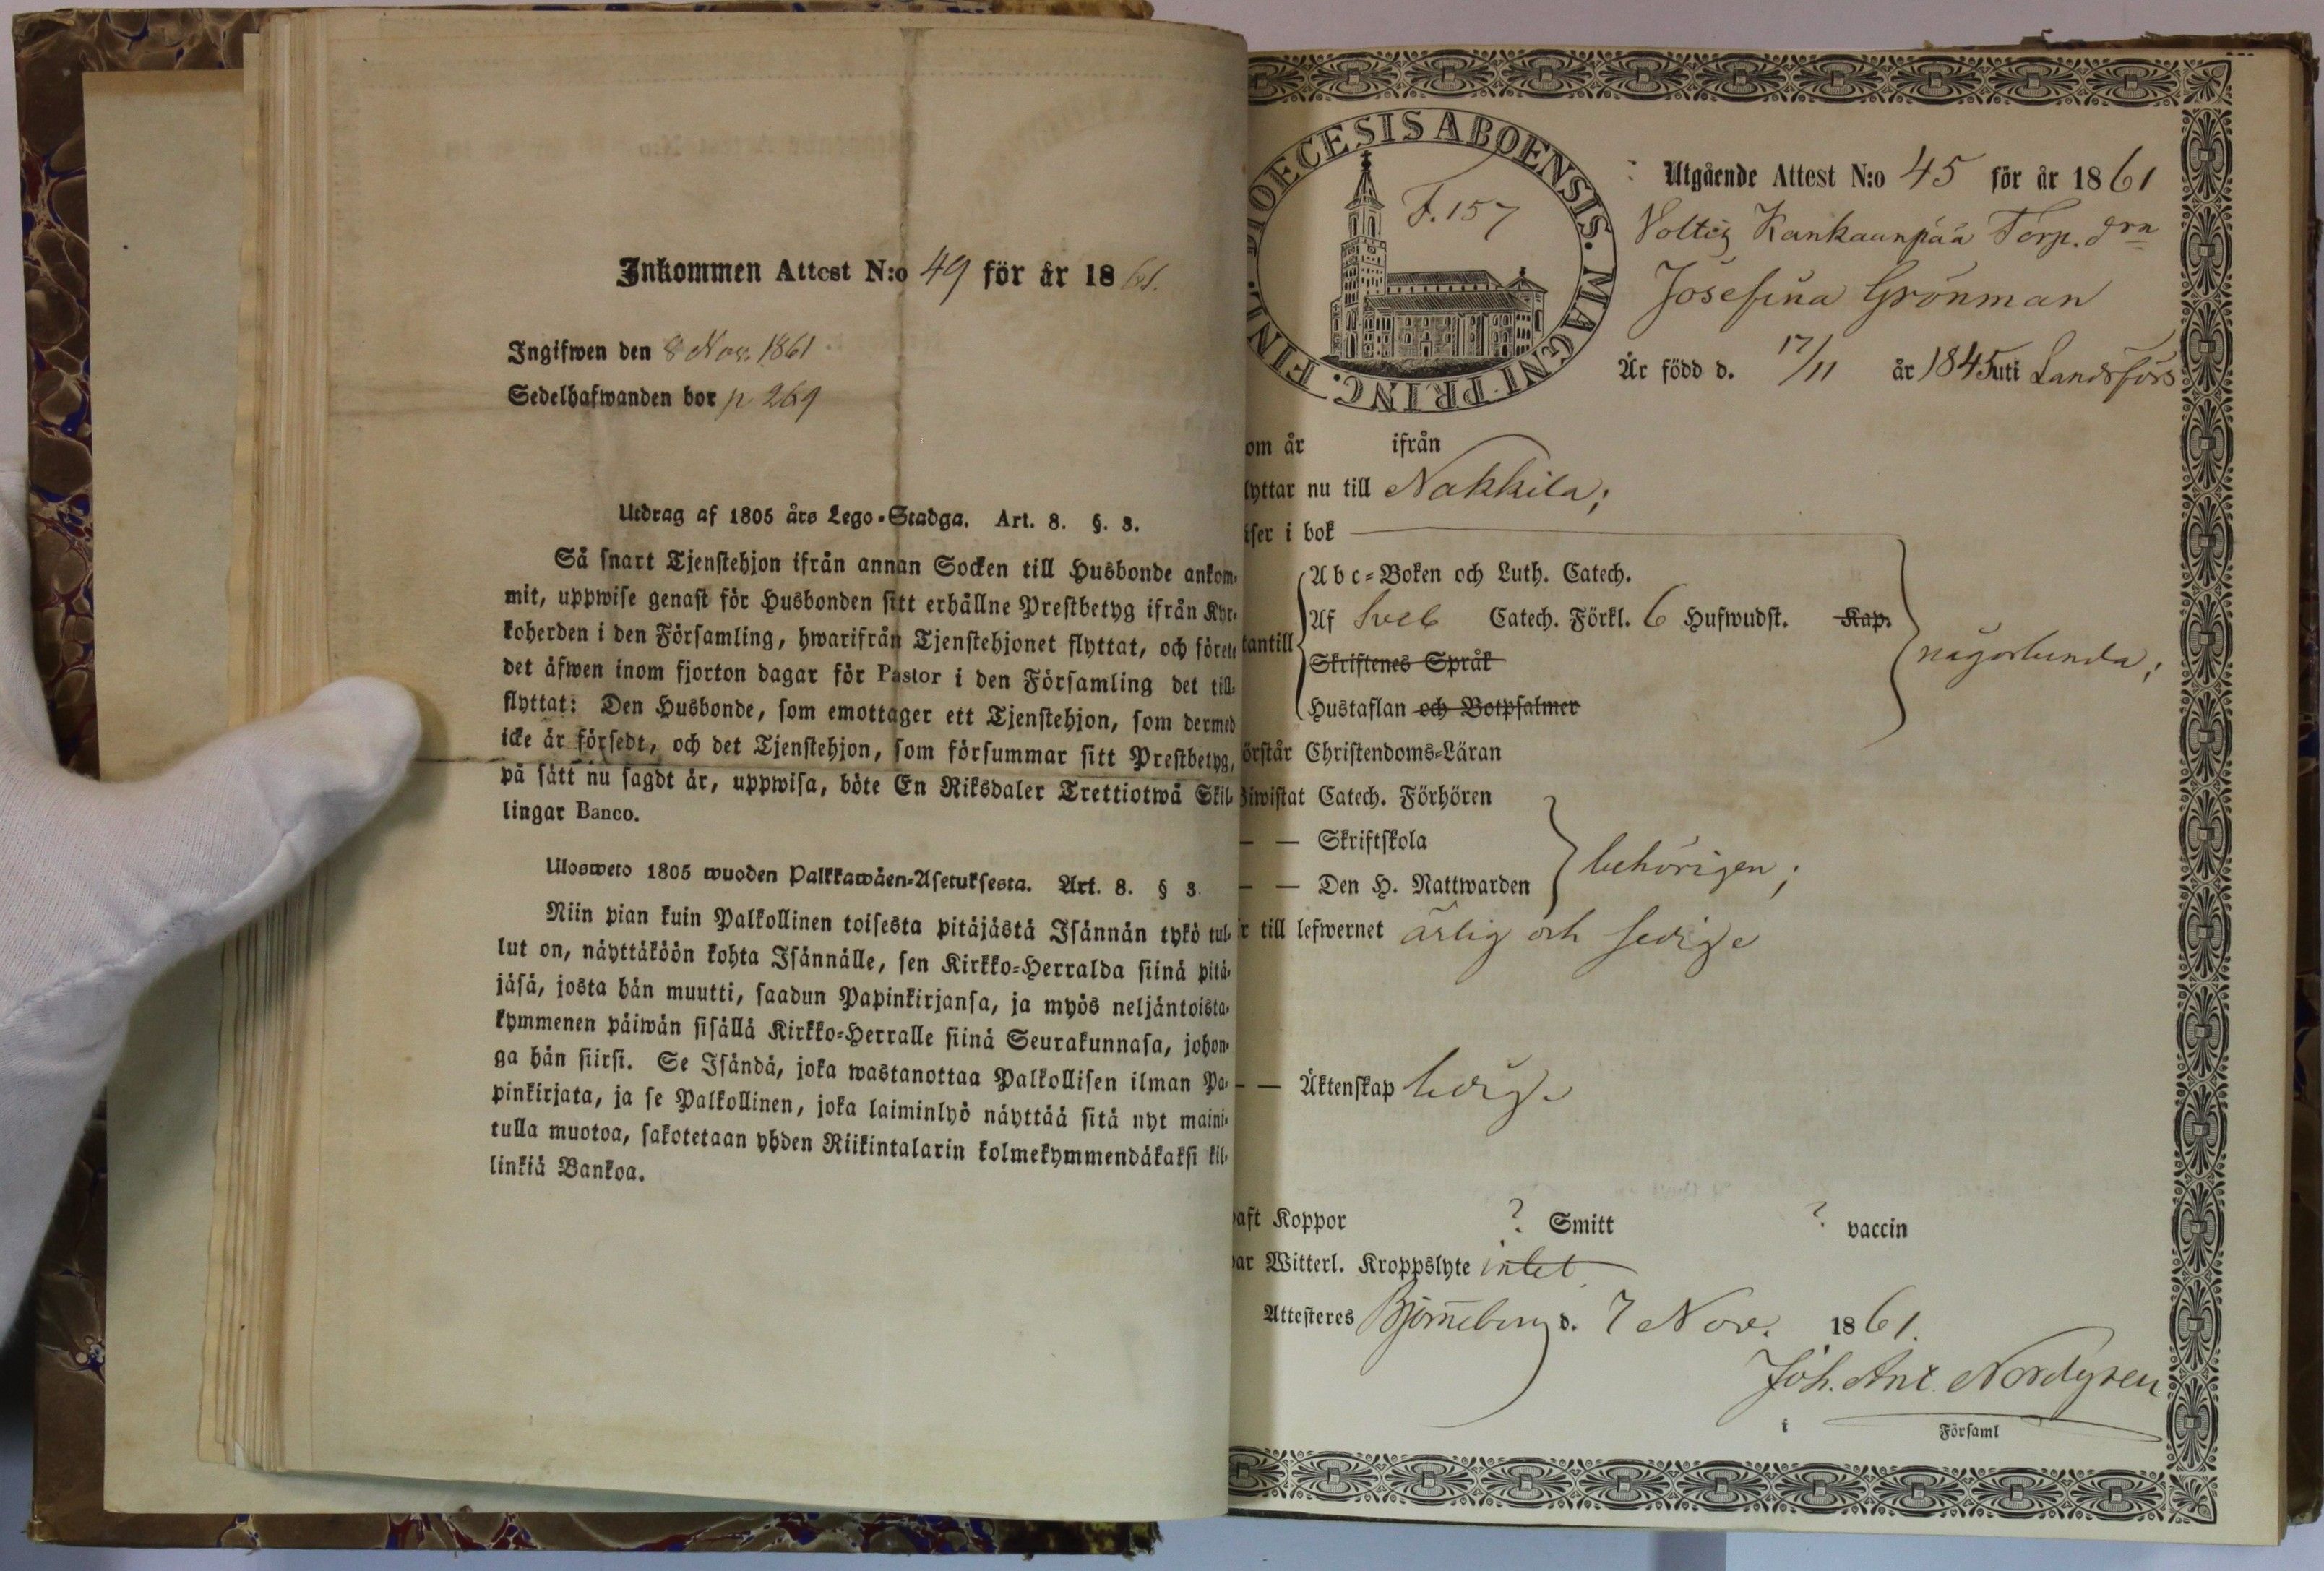 Inkommen Attest N:o 49 för år 1861.
Ingifwen den 8 Nov. 1861
Sedelhafwanden bor p. 269
Utdrag af 1805 års Lego-Stadga. Art. 8. §. 3.
Så snart Tjenstehjon ifrån annan Socken till Husbonde ankom-
mit, uppwise genast för Husbonden sitt erhållne Prestbetyg ifrån Kyr-
koherden i den Församling, hwarifrån Tjenstehjonet flyttat, och förete
det äfwen inom fjorton dagar för Pastor i den Församling det till-
flyttat: Den Husbonde, som emottager ett Tjenstehjon, som dermed
icke är försedt, och det Tjenstehjon, som försummar sitt Prestbetyg,
på sätt nu sagdt är, uppwisa, böte En Riksdaler Trettiotwå Skil-
lingar Banco.
Ulosweto 1805 wuoden Palkkawäen-Asetuksesta. Art. 8. § 3.
Niin pian kuin Palkollinen toisesta pitäjästä Isännän tykö tul-
lut on, näyttäköön kohta Isännälle, sen Kirkko-Herralda siinä pitä-
jäsä, josta hän muutti, saadun Papinkirjansa, ja myös neljäntoista-
kymmenen päiwän sisällä Kirkko-Herralle siinä Seurakunnasa, johon-
ga hän siirsi. Se Isändä, joka wastanottaa Palkollisen ilman Pa-
pinkirjata, ja se Palkollinen, joka laiminlyö näyttää sitä nyt maini-
tulla muotoa, sakotetaan yhden Riikintalarin kolmekymmendäkaksi kil-
linkiä Bankoa.
DIOECESIS ABOENSIS. MAGNI PRINC. FINL.
F. 157
Utgående Attest N:o 45 för år 1861
Kankaanpää Torp. drn
Josefina Grönman
Är född d. 17/11 år 1845 uti Landsförs
om år ifrån
lyttar nu till Nakkila;
iser i bok
Abc-Boken och Luth. Catech.
Af Sveb Catech. Förkl. 6 Hufwudst. Kap.
tantill
Skriftenes Språk
någorlunda;
Hustaflan och Botpsalmer
örstår Christendoms-Läran
iwistat Catech. Förhören
— — Skriftskola
behörigen;
— — Den H. Nattwarden
r till lefwernet ärlig och sedige
— — Äktenskap ledig.
aft Koppor ? Smitt ? vaccin
ar Witterl. Kroppslyte intet
Attesteres Björneborg d. 7 Nov. 1861.
Joh. Ant. Nordgren
i Församl